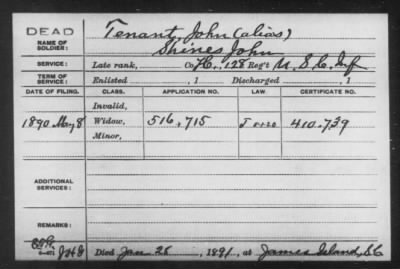 DEAD
NAME OF SOLDIER: Tenant, John (alias)
Shines John
SERVICE: Late rank, Co. H, 128 Reg't U. S. C. Inf
TERM OF SERVICE: Enlisted , 1 Discharged , 1
DATE OF FILING. CLASS. APPLICATION NO. LAW. CERTIFICATE NO.
Invalid,
1890 May 8 Widow, 516,715 410,739
Minor,
ADDITIONAL SERVICES:
REMARKS:
Died Jan 25, 1891, at James Island, S.C.